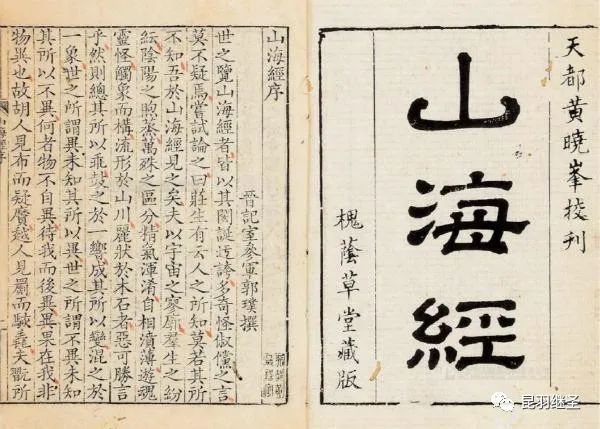 天都黃曉峯挍刊
山海經
槐蔭草堂藏版
山海經序
晉記室參軍郭璞撰
世之覽山海經者皆以其閎誕迂誇多奇怪俶儻之言
莫不疑焉嘗試論之曰莊生有云人之所知莫若其所
不知吾於山海經見之矣夫以宇宙之寥廓羣生之紛
紜陰陽之煦蒸萬殊之區分精氣渾淆自相濆薄遊魂
靈怪觸象而構流形於山川麗狀於木石者惡可勝言
乎然則總其所以乖鼓之於一響成其所以變混之於
一象世之所謂異未知其所以異世之所謂不異未知
其所以不異何者物不自異待我而後異異果在我非
物異也故胡人見布而疑黂越人見罽而駭毳夫翫所
昆羽继圣